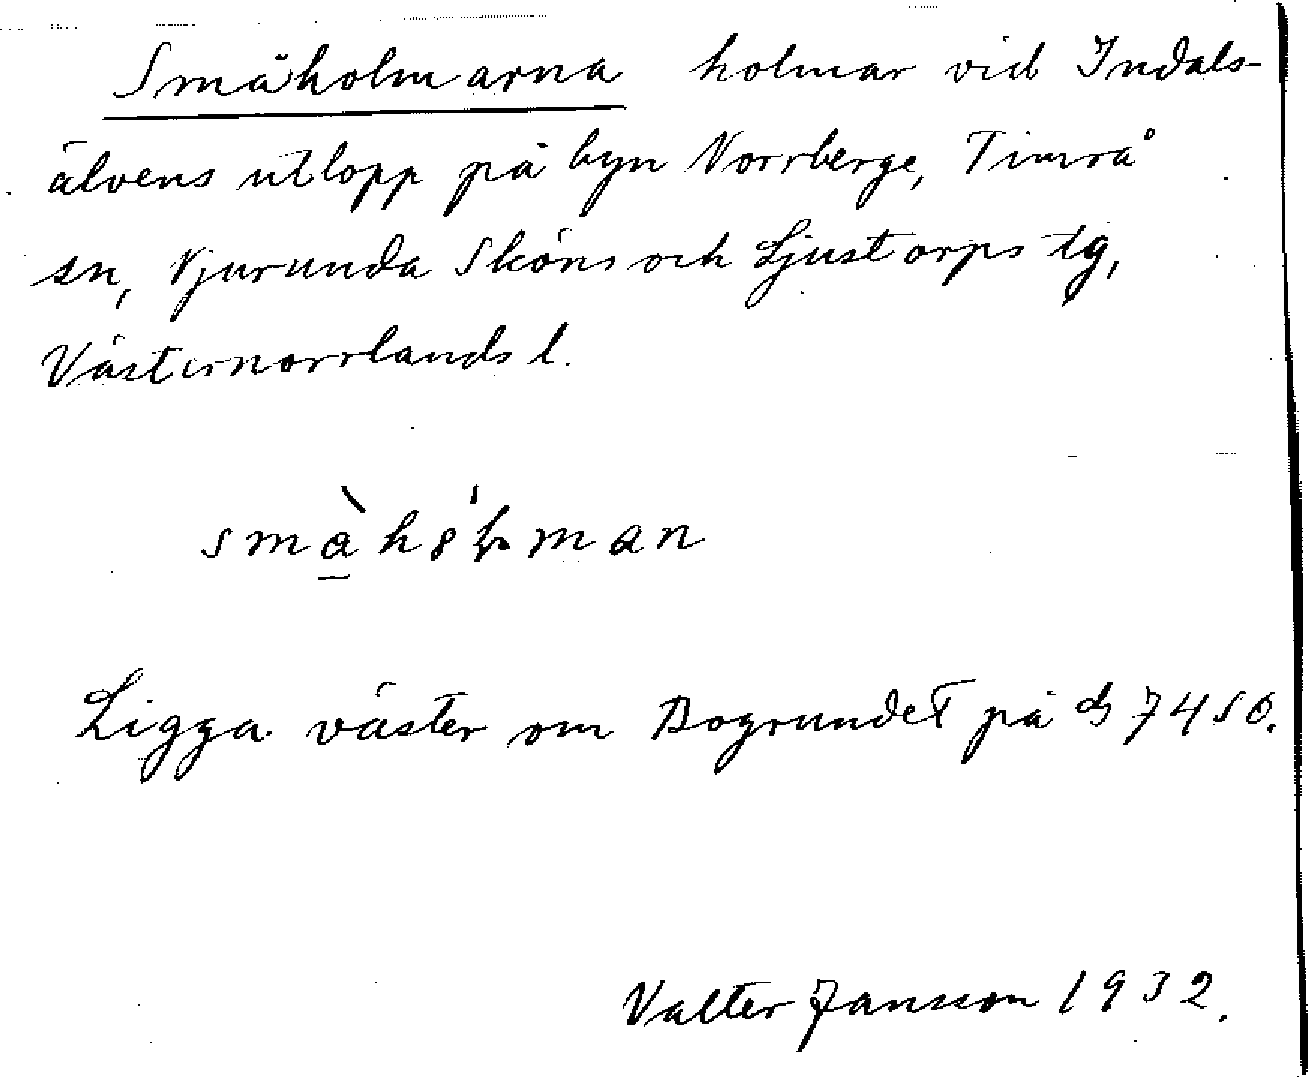 Småholmarna holmar vid Indals-
älvens utlopp på byn Norrberge, Timrå
sn, Njurunda Sköns och Ljustorps tg,
Västernorrlands l.
Ligga väster om Bogrundet på 74 SO.
Valter Jansson 1932.